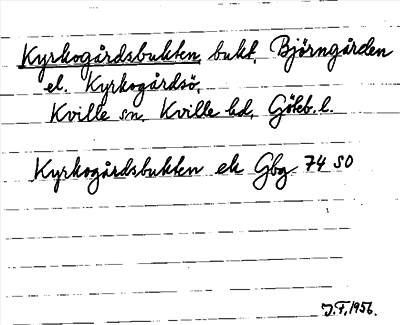 Kyrkogårdsbukten, bukt, Björngården
el. Kyrkogårdsö,
Kville sn, Kville hd, Göteb. l.
Kyrkogårdsbukten ek Gbg 74 SO
J.F, 1956.